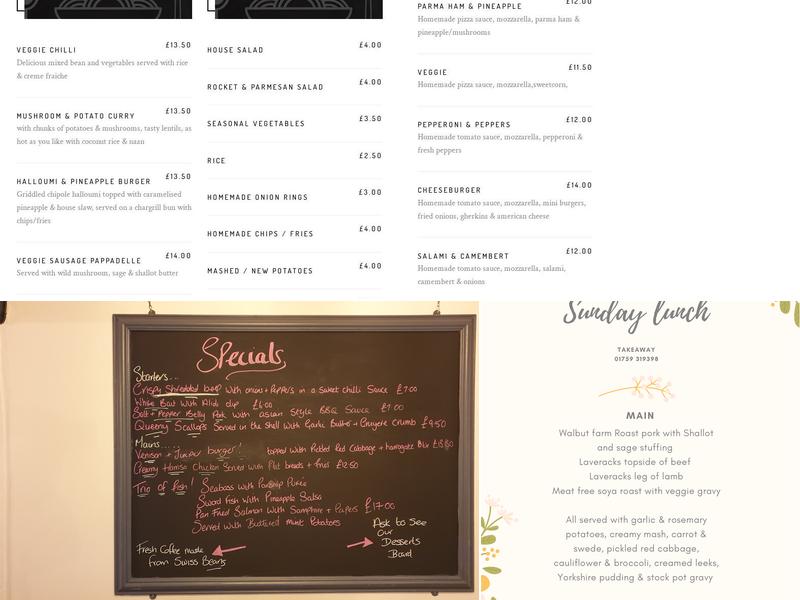 VEGGIE CHILLI £13.50
Delicious mixed bean and vegetables served with rice
& creme fraiche
MUSHROOM & POTATO CURRY £13.50
with chunks of potatoes & mushrooms, tasty lentils, as
hot as you like with coconut rice & naan
HALLOUMI & PINEAPPLE BURGER £13.50
Griddled chipole halloumi topped with caramelised
pineapple & house slaw, served on a chargrill bun with
chips/fries
VEGGIE SAUSAGE PAPPADELLE £14.00
Served with wild mushroom, sage & shallot butter
HOUSE SALAD £4.00
ROCKET & PARMESAN SALAD £4.00
SEASONAL VEGETABLES £3.50
RICE £2.50
HOMEMADE ONION RINGS £3.00
HOMEMADE CHIPS / FRIES £4.00
MASHED / NEW POTATOES £4.00
PARMA HAM & PINEAPPLE £12.00
Homemade pizza sauce, mozzarella, parma ham &
pineapple/mushrooms
VEGGIE £11.50
Homemade pizza sauce, mozzarella,sweetcorn,
PEPPERONI & PEPPERS £12.00
Homemade tomato sauce, mozzarella, pepperoni &
fresh peppers
CHEESEBURGER £14.00
Homemade tomato sauce, mozzarella, mini burgers,
fried onions, gherkins & american cheese
SALAMI & CAMEMBERT £12.00
Homemade tomato sauce, mozzarella, salami,
camembert & onions
Specials
Starters...
Crispy Shredded beef with onions + Peppers in a sweet chilli Sauce £7.00
White Bait With Aioli dip £6.00
Salt + Pepper Belly Pork with asian Style BBQ Sauce £7.00
Queeny Scallops Served in the Shell With Garlic Butter + Gruyere Crumb £9.50
Mains.....
Venison + Juniper burger! topped with Pickled Red Cabbage + harrogate Blue
Creamy Harrisa Chicken Served with Flat breads + fries £12.50
Trio of fish! Seabass with Parsnip Purée
Sword Fish With Pineapple Salsa
Pan Fried Salmon With Samphire + Capers £17.00
Served With Buttered Mint Potatoes
Fresh Coffee made
from Swiss Beans
Ask to See
our
Desserts
Board
Sunday lunch
TAKEAWAY
01759 319398
MAIN
Walbut farm Roast pork with Shallot
and sage stuffing
Laveracks topside of beef
Laveracks leg of lamb
Meat free soya roast with veggie gravy
All served with garlic & rosemary
potatoes, creamy mash, carrot &
swede, pickled red cabbage,
cauliflower & broccoli, creamed leeks,
Yorkshire pudding & stock pot gravy